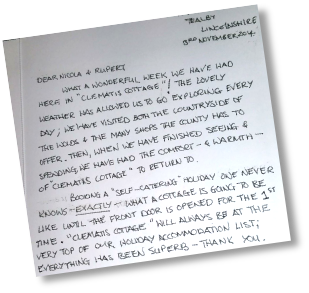 DALBY
LINCOLNSHIRE
3RD NOVEMBER 2014.
DEAR NICOLA & RUPERT
WHAT A WONDERFUL WEEK WE HAVE HAD
HERE IN "CLEMATIS COTTAGE"! THE LOVELY
WEATHER HAS ALLOWED US TO GO EXPLORING EVERY
DAY; WE HAVE VISITED BOTH THE COUNTRYSIDE OF
THE WOLDS & THE MANY SHOPS THE COUNTY HAS TO
OFFER. THEN, WHEN WE HAVE FINISHED SEEING &
SPENDING WE HAVE HAD THE COMFORT - & WARMTH -
OF "CLEMATIS COTTAGE" TO RETURN TO.
BOOKING A "SELF-CATERING" HOLIDAY ONE NEVER
KNOWS - EXACTLY - WHAT A COTTAGE IS GOING TO BE
LIKE UNTIL THE FRONT DOOR IS OPENED FOR THE 1ST
TIME. "CLEMATIS COTTAGE" WILL ALWAYS BE AT THE
VERY TOP OF OUR HOLIDAY ACCOMMODATION LIST;
EVERYTHING HAS BEEN SUPERB - THANK YOU.